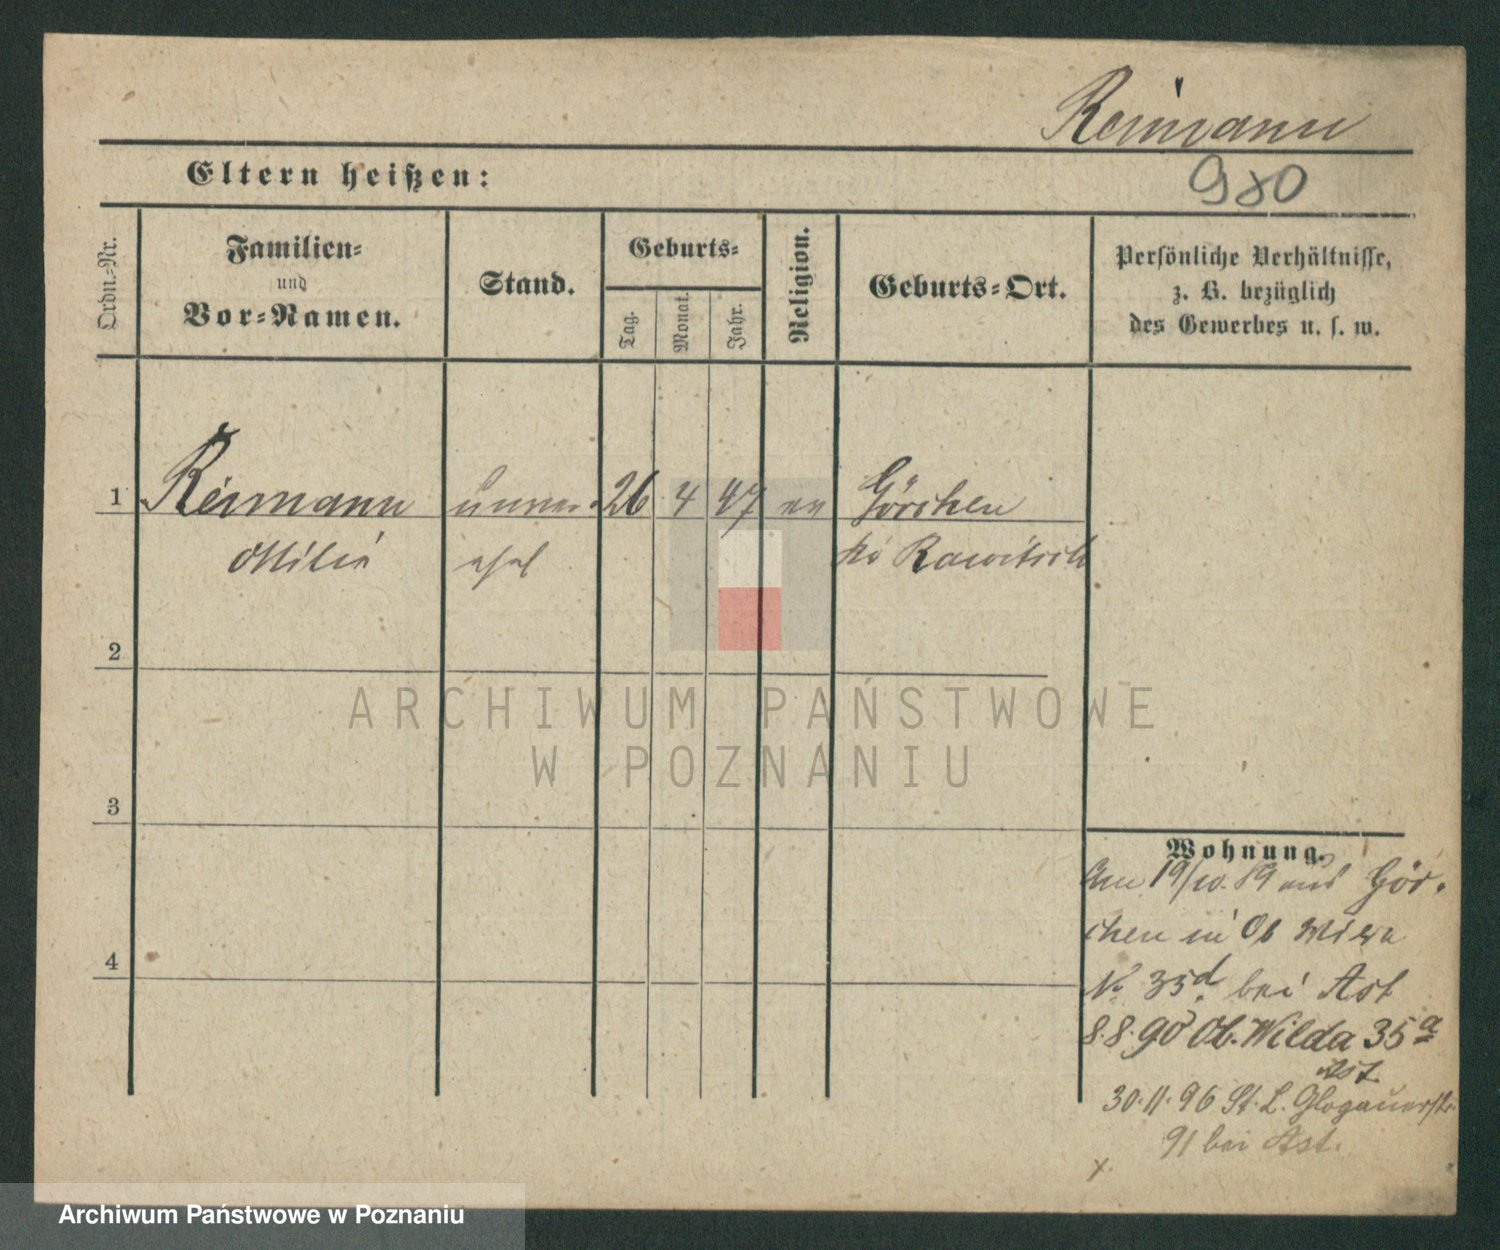 Reimann
Eltern heißen:
980
Ordn.-Nr.
Familien-
und
Vor-Namen.
Stand.
Geburts-
Tag.
Monat.
Jahr.
Religion.
Geburts-Ort.
Persönliche Verhältnisse,
z. B. bezüglich
des Gewerbes u. s. w.
1 Reimann unver- 26 4 47 ev Görchen
Ottilie ehel Rawitsch
2
ARCHIWUM PAŃSTWOWE
W POZNANIU
3
Wohnung.
Am 19/10. 89 aus Gör-
chen in Ob Wilda
No 35d bei Ast
8.8.90 Ob. Wilda 35a
Ast
30.11.96 St. L. Glogauerstr.
91 bei Ast.
4
x.
Archiwum Państwowe w Poznaniu